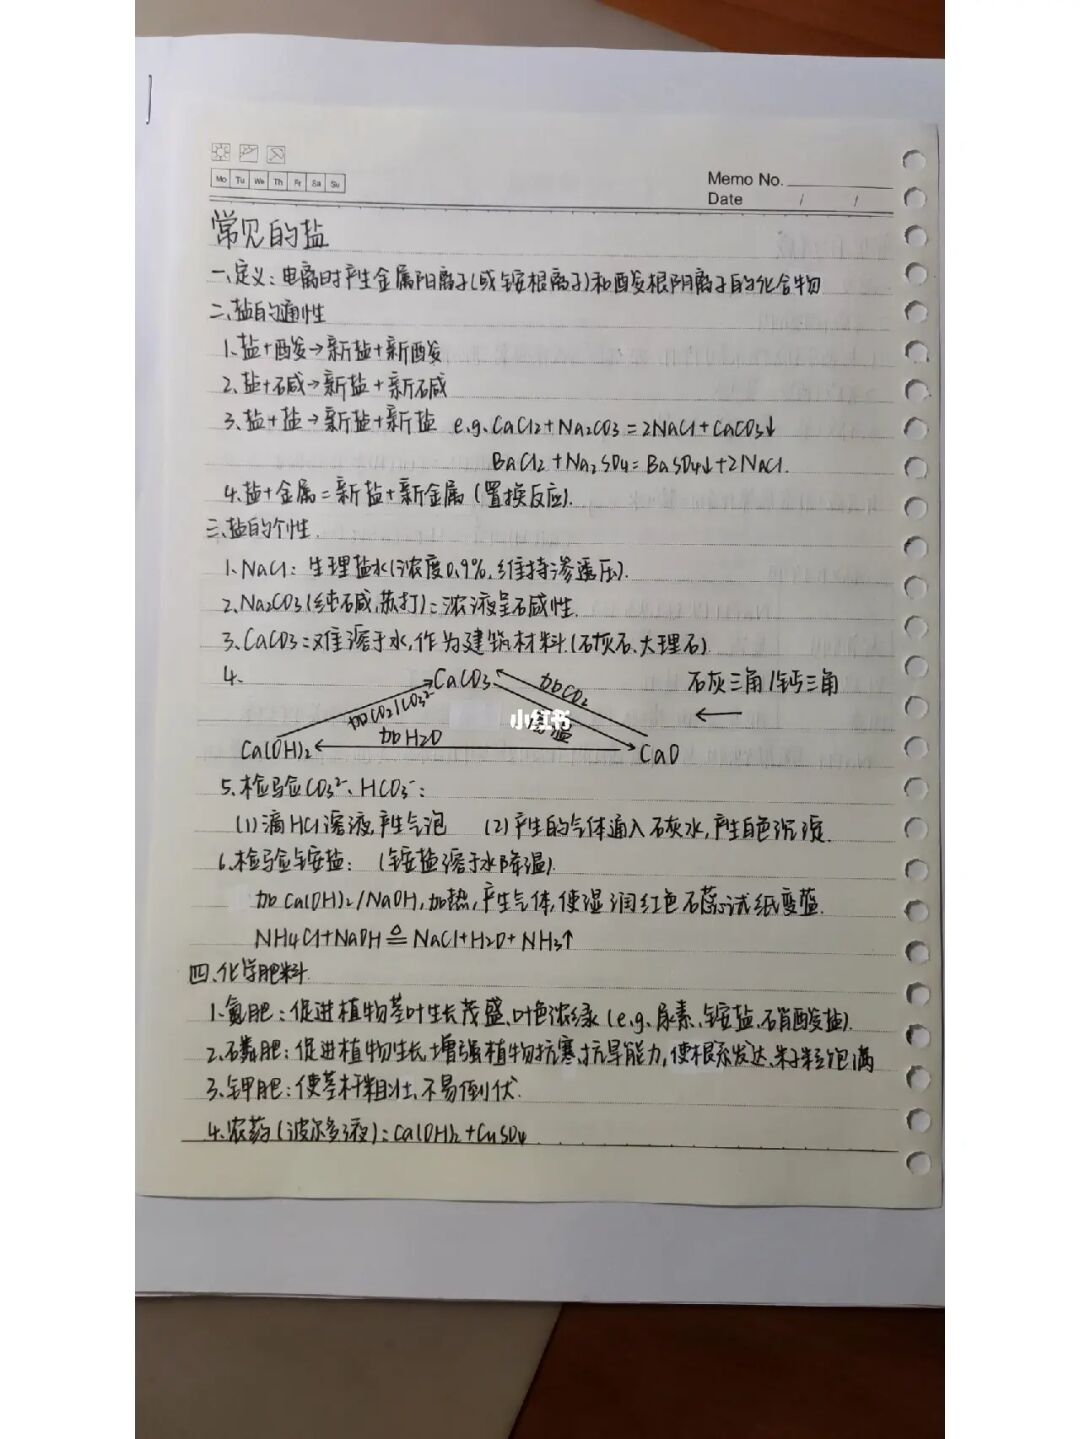 Mo Tu We Th Fr Sa Su
Memo No.
Date / /
常见的盐
一、定义：电离时产生金属阳离子(或铵根离子)和酸根阴离子的化合物
二、盐的通性
1、盐+酸→新盐+新酸
2、盐+碱→新盐+新碱
3、盐+盐→新盐+新盐 e.g. CaCl2+Na2CO3=2NaCl+CaCO3↓
BaCl2+Na2SO4=BaSO4↓+2NaCl.
4、盐+金属=新盐+新金属 (置换反应).
三、盐的个性.
1、NaCl：生理盐水(浓度0.9%,维持渗透压).
2、Na2CO3(纯碱,苏打)：溶液呈碱性.
3、CaCO3：难溶于水,作为建筑材料.(石灰石、大理石)
4、 CaCO3 加CO2 石灰三角/钙三角
加CO2/CO3²⁻ 小红书 高温 ←
Ca(OH)2 加H2O CaO
5、检验CO3²⁻、HCO3⁻：
(1)滴HCl溶液,产生气泡 (2)产生的气体通入石灰水,产生白色沉淀.
6、检验铵盐：(铵盐溶于水降温).
加Ca(OH)2/NaOH,加热,产生气体,使湿润红色石蕊试纸变蓝.
NH4Cl+NaOH≜NaCl+H2O+NH3↑
四、化学肥料.
1、氮肥：促进植物茎叶生长茂盛、叶色浓绿 (e.g. 尿素、铵盐、硝酸盐).
2、磷肥：促进植物生长,增强植物抗寒、抗旱能力,使根系发达、籽粒饱满
3、钾肥：使茎杆粗壮,不易倒伏.
4、农药(波尔多液)：Ca(OH)2+CuSO4